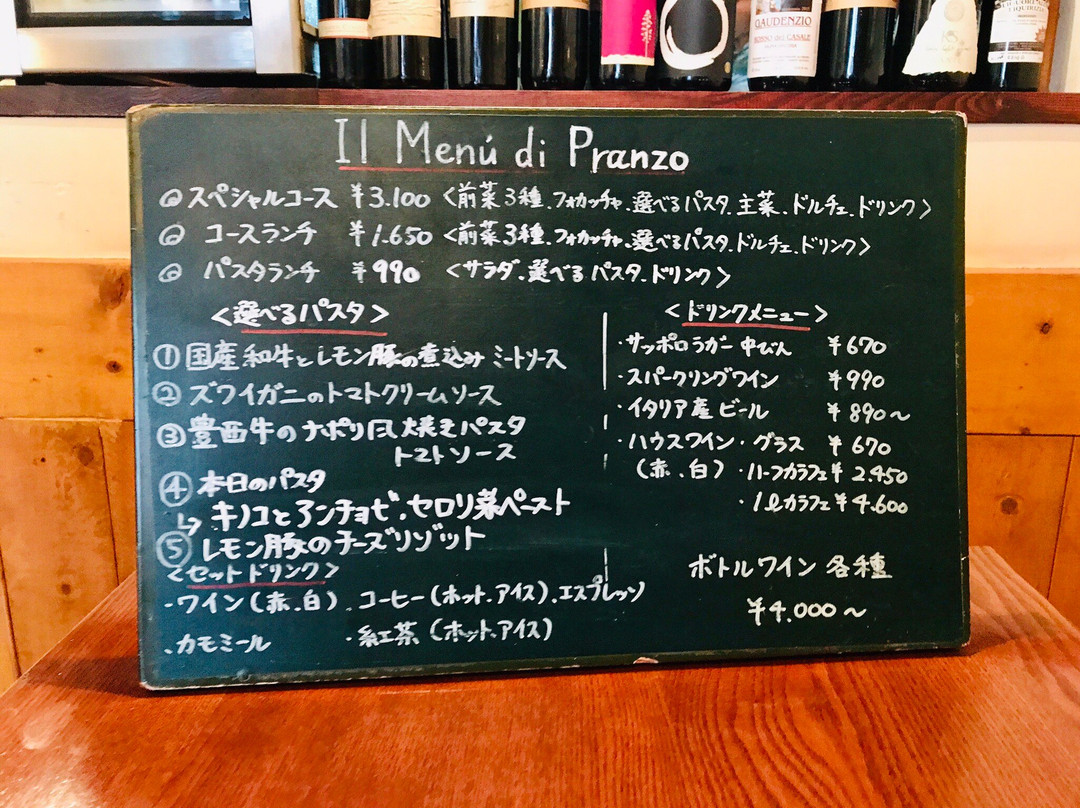 GAUDENZIO
Il Menú di Pranzo
◎スペシャルコース ¥3.100 <前菜3種、フォカッチャ、選べるパスタ、主菜、ドルチェ、ドリンク>
◎ コースランチ ¥1.650 <前菜3種、フォカッチャ、選べるパスタ、ドルチェ、ドリンク>
◎ パスタランチ ¥990 <サラダ、選べるパスタ、ドリンク>
<選べるパスタ>
①国産和牛とレモン豚の煮込みミートソース
②ズワイガニのトマトクリームソース
③豊西牛のナポリ風焼きパスタ
トマトソース
④本日のパスタ
↳キノコとアンチョビ、セロリ菜ペースト
⑤レモン豚のチーズリゾット
<セットドリンク>
・ワイン(赤、白)、コーヒー(ホット、アイス)、エスプレッソ
・カモミール ・紅茶(ホット、アイス)
<ドリンクメニュー>
・サッポロラガー中びん ¥670
・スパークリングワイン ¥990
・イタリア産ビール ¥890~
・ハウスワイン・グラス ¥670
(赤、白)・ハーフカラフェ¥2.450
・1ℓカラフェ¥4.600
ボトルワイン各種
¥4.000~